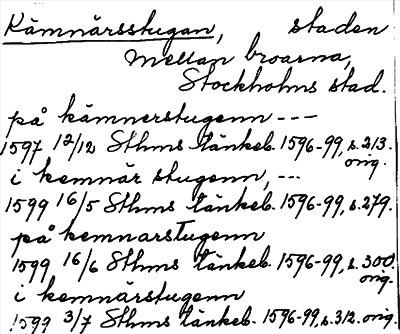 Kämnärsstugan, staden
mellan broarna,
Stockholms stad.
på kämnerstugenn ---
1597 12/12 Sthms tänkeb. 1596-99, s. 213.
orig.
i kemnär stugenn, ---
1599 16/5 Sthms tänkeb. 1596-99, s. 279.
på kemnarstugenn
1599 16/6 Sthms tänkeb. 1596-99, s. 300.
orig.
i kemnärstugenn
1599 3/7 Sthms tänkeb. 1596-99, s. 312. orig.